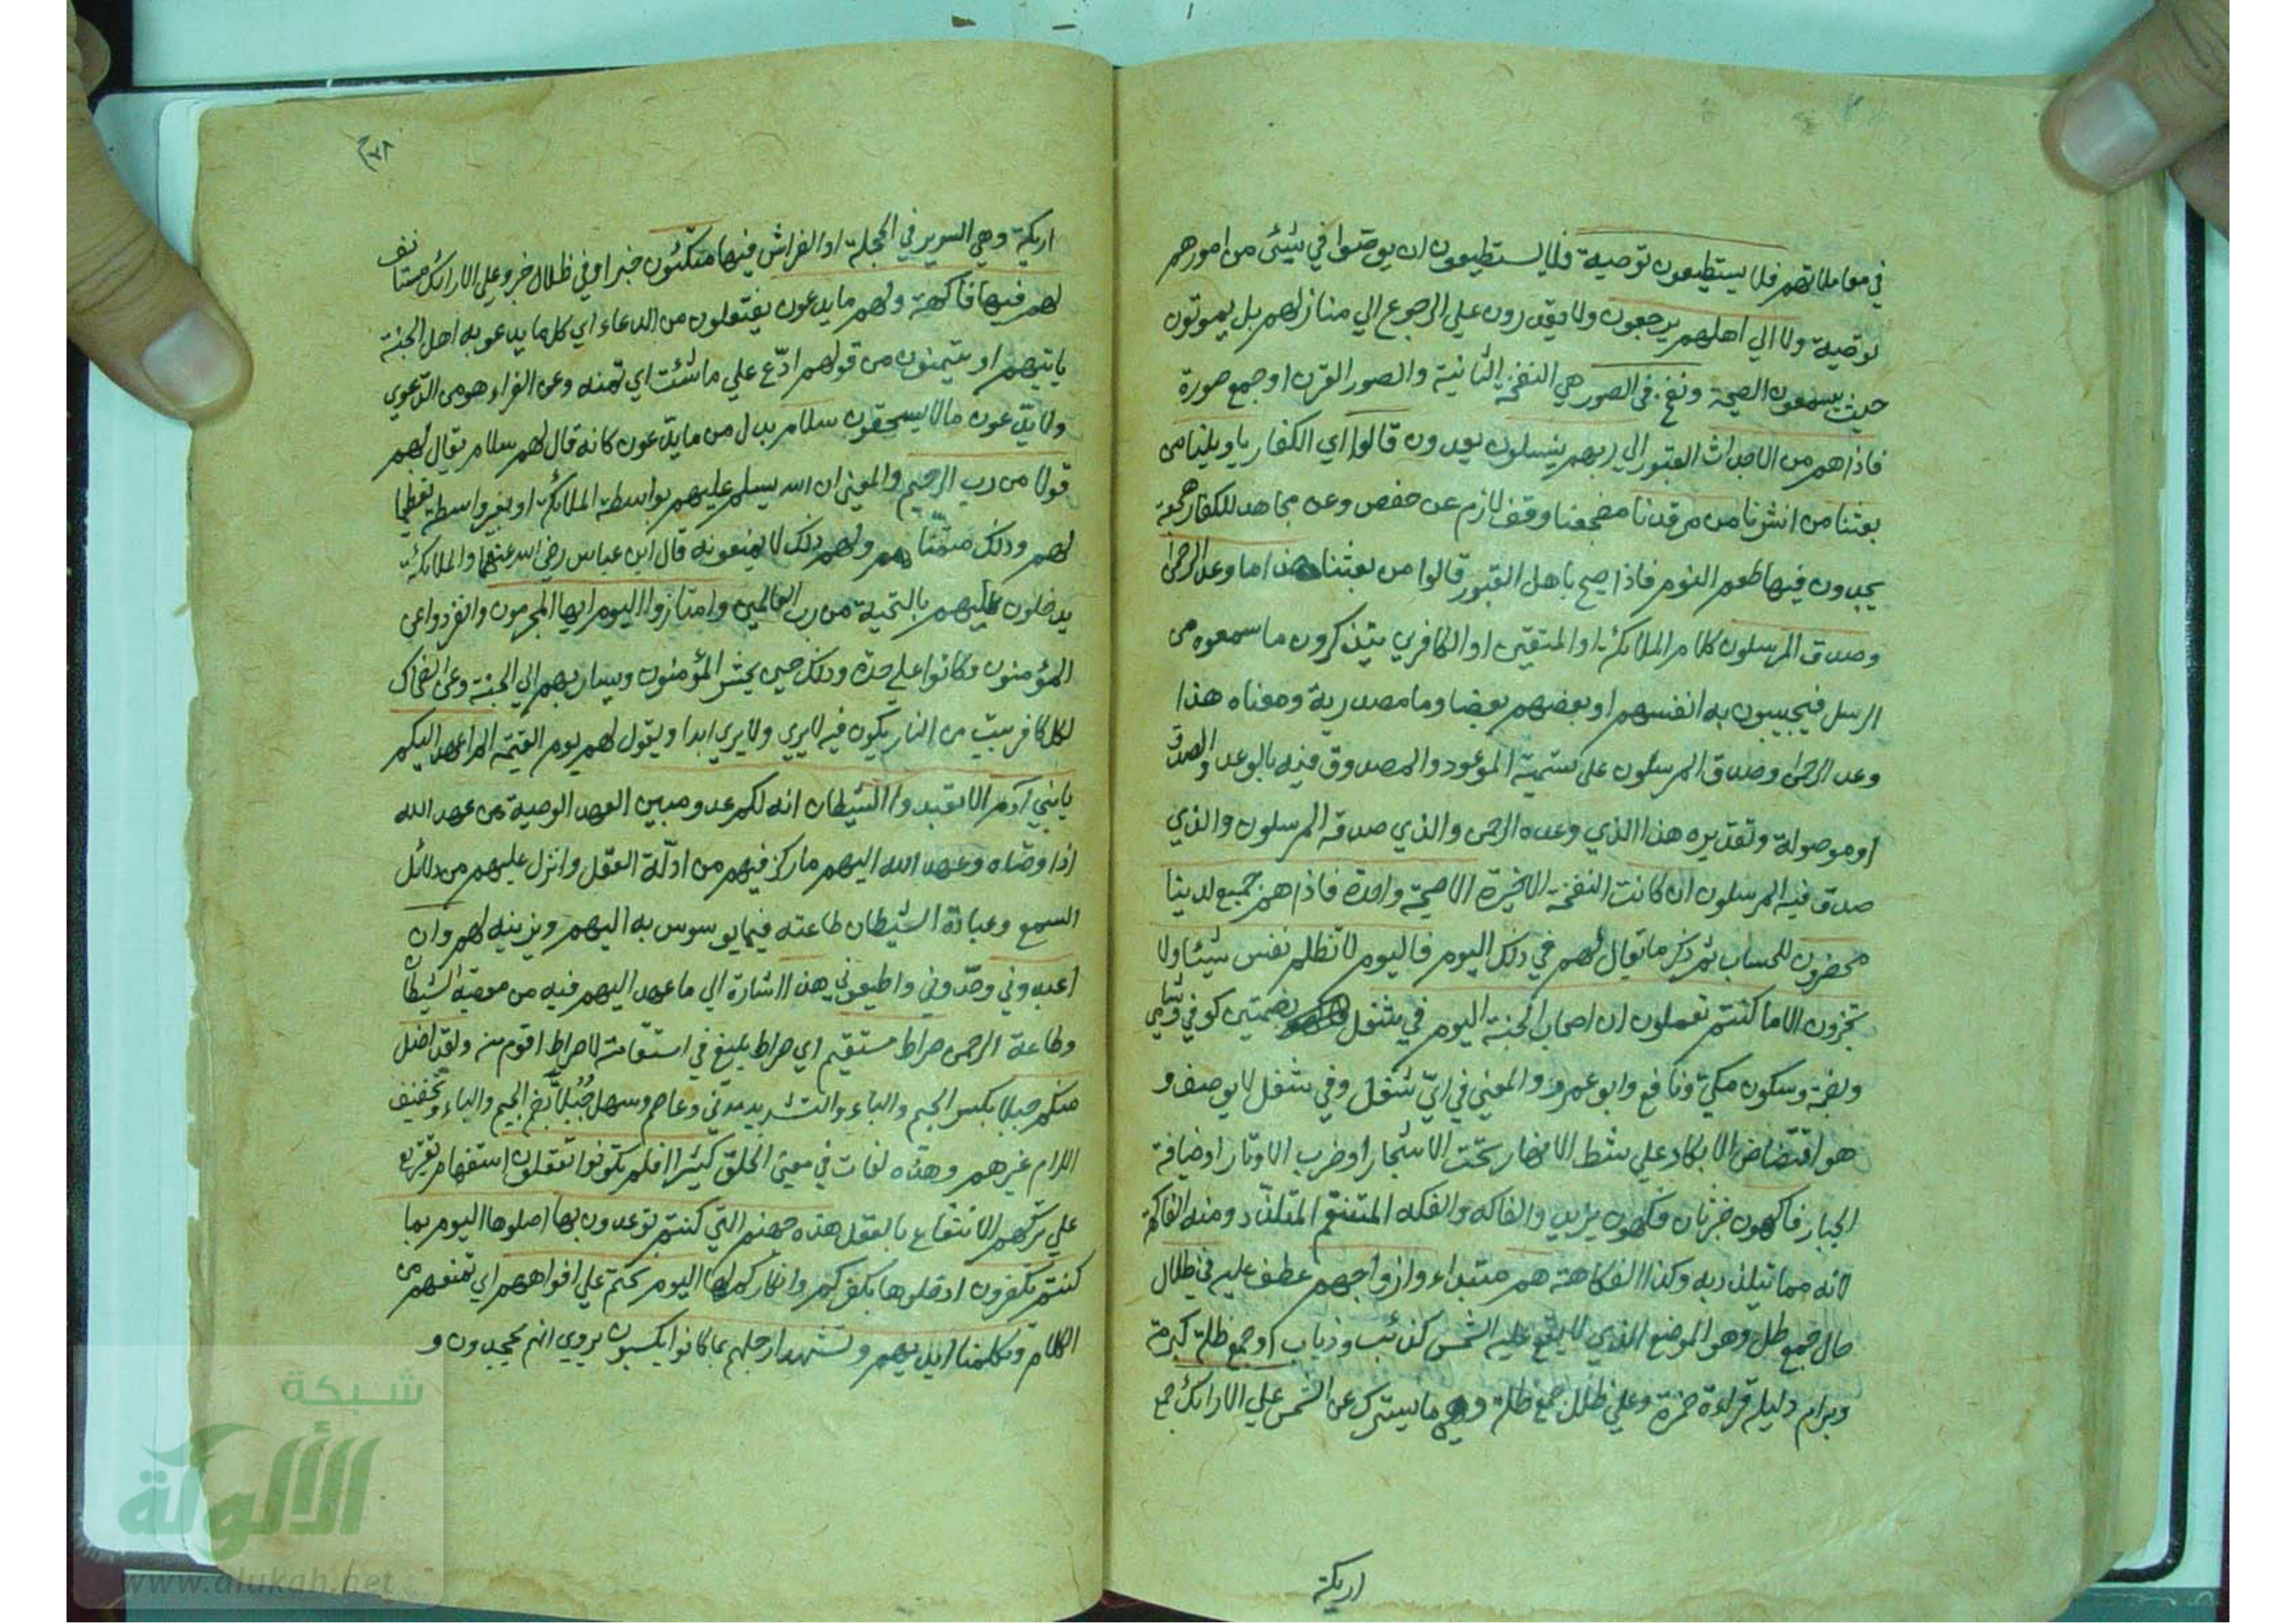 في معاملاتهم فلا يستطيعون توصية فلا يستطيعون ان يوصوا في شيئ من امورهم
توصية ولا الي اهلهم يرجعون ولا يقدرون علي الرجوع الي منازلهم بل يموتون
حيث يسمعون الصيحة ونفخ في الصور هي النفخة الثانية والصور القرن او جمع صورة
فاذا هم من الاجداث القبور الي ربهم ينسلون يعدون قالوا اي الكفار يا ويلنا من
بعثنا من انشرنا من مرقدنا مضجعنا وقف لازم عن حفص وعن مجاهد للكفار هجعة
يجدون فيها طعم النوم فاذا صيح باهل القبور قالوا من بعثنا هذا ما وعد الرحمن
وصدق المرسلون كلام الملائكة او المتقين او الكافرين يتذكرون ما سمعوه من
الرسل فيجيبون به انفسهم او بعضهم بعضا وما مصدرية ومعناه هذا
وعد الرحمن وصدق المرسلون علي تسمية الموعود والمصدوق فيه بالوعد والصدق
او موصولة وتقديره هذا الذي وعده الرحمن والذي صدقه المرسلون والذي
صدق فيه المرسلون ان كانت النفخة الاخيرة الا صيحة واحدة فاذا هم جميع لدينا
محضرون للحساب ثم ذكر ما يقال لهم في ذلك اليوم فاليوم لا تظلم نفس شيئا ولا
تجزون الا ما كنتم تعملون ان اصحاب الجنة اليوم في شغل بضمتين كوفي وشامي
وبضمة وسكون مكي ونافع وابو عمرو والمعني في اي شغل وفي شغل لا يوصف و
هو افتضاض الابكار علي شط الانهار تحت الاشجار او ضرب الاوتار او ضيافة
الجبار فاكهون خبر ثان فكهون يزيد والفاكه والفكه المتنعم المتلذذ ومنه الفاكهة
لانه مما يتلذذ به وكذا الفكاهة هم مبتداء وازواجهم عطف عليه في ظلال
حال جمع ظل وهو الموضع الذي لا يقع عليه الشمس كذئب وذياب او جمع ظلة كبرمة
وبرام دليله قراءة حمزة وعلي ظلل جمع ظلة وهي ما يسترك عن الشمس علي الارائك جمع
اريكة
٧٨
اريكة وهي السرير في الحجلة او الفراش فيها متكئون خبر او في ظلال خبر وعلي الارائك مستانف
لهم فيها فاكهة ولهم ما يدعون يفتعلون من الدعاء اي كل ما يدعو به اهل الجنة
ياتيهم او يتمنون من قولهم ادع علي ما شئت اي تمنه وعن الفراء هو من الدعوي
ولا يدعون ما لا يستحقون سلام بدل من ما يدعون كانه قال لهم سلام يقال لهم
قولا من رب الرحيم والمعني ان الله يسلم عليهم بواسطة الملائكة او بغير واسطة تعظيما
لهم وذلك متمناهم ولهم ذلك لا يمنعونه قال ابن عباس رضي الله عنهما والملائكة
يدخلون عليهم بالتحية من رب العالمين وامتازوا اليوم ايها المجرمون وانفردوا عن
المؤمنون وكانوا علي حدة وذلك حين يحشر المؤمنون ويسار بهم الي الجنة وعن الضحاك
لكل كافر بيت من النار يكون فيه لا يري ولا يري ابدا ويقول لهم يوم القيمة الم اعهد اليكم
يا بني آدم الا تعبدوا الشيطان انه لكم عدو مبين العهد الوصية من عهد الله
اذا وصاه وعهد الله اليهم ما ركز فيهم من ادلة العقل وانزل عليهم من دلائل
السمع وعبادة الشيطان طاعته فيما يوسوس به اليهم ويزينه لهم وان
اعبدوني وحدوني واطيعوني هذا اشارة الي ما عهد اليهم فيه من معصية الشيطان
وطاعة الرحمن صراط مستقيم اي صراط بليغ في استقامته لا صراط اقوم منه ولقد اضل
منكم جبلا بكسر الجيم والباء والتشديد مدني وعاصم وسهل جبلا بضم الجيم والباء وتخفيف
اللام غيرهم وهذه لغات في معني الخلق كثيرا افلم تكونوا تعقلون استفهام تقريع
علي تركهم الانتفاع بالعقل هذه جهنم التي كنتم توعدون بها اصلوها اليوم بما
كنتم تكفرون ادخلوها بكفركم وانكاركم لها اليوم نختم علي افواههم اي نمنعهم من
الكلام وتكلمنا ايديهم وتشهد ارجلهم بما كانوا يكسبون يروي انهم يجحدون و
شبكة
الألوكة
www.alukah.net